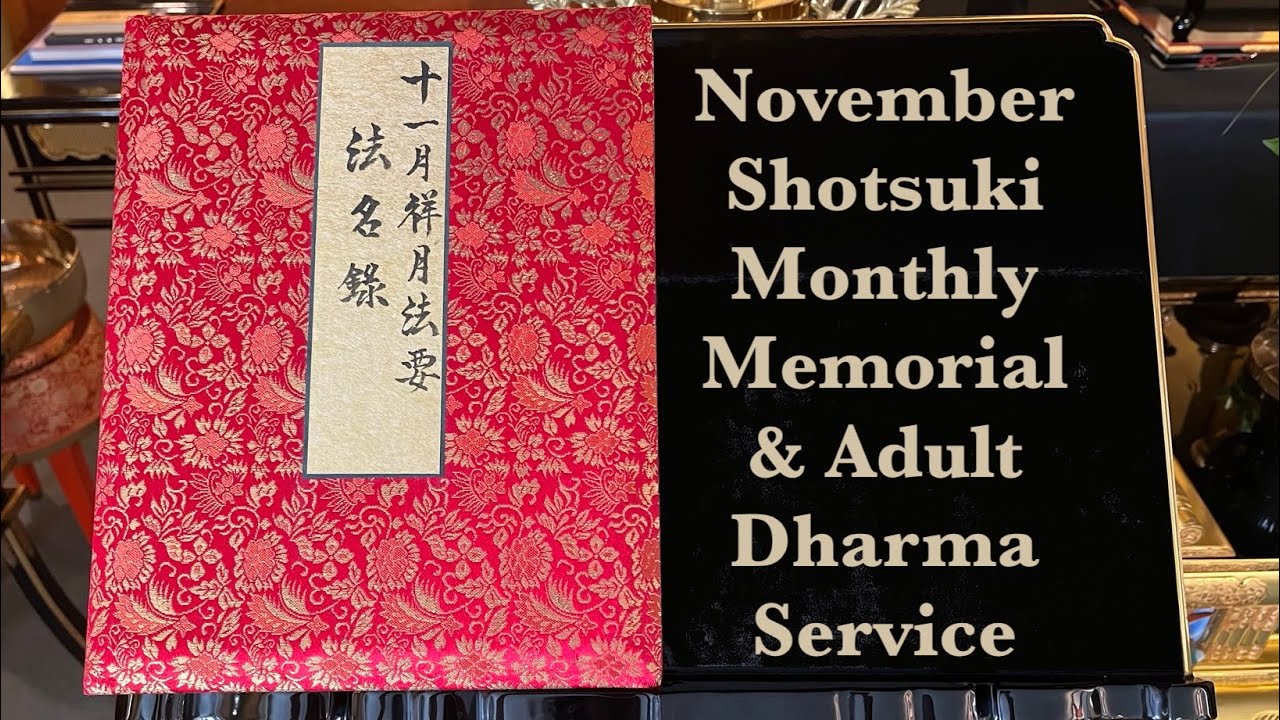 十一月祥月法要
法名錄
November
Shotsuki
Monthly
Memorial
& Adult
Dharma
Service